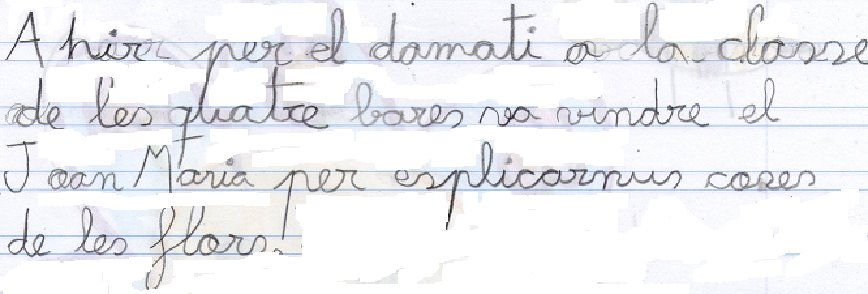 A hir per el damati a la classe
de les quatre bares va vindre el
Joan Maria per esplicarnus coses
de les flors.